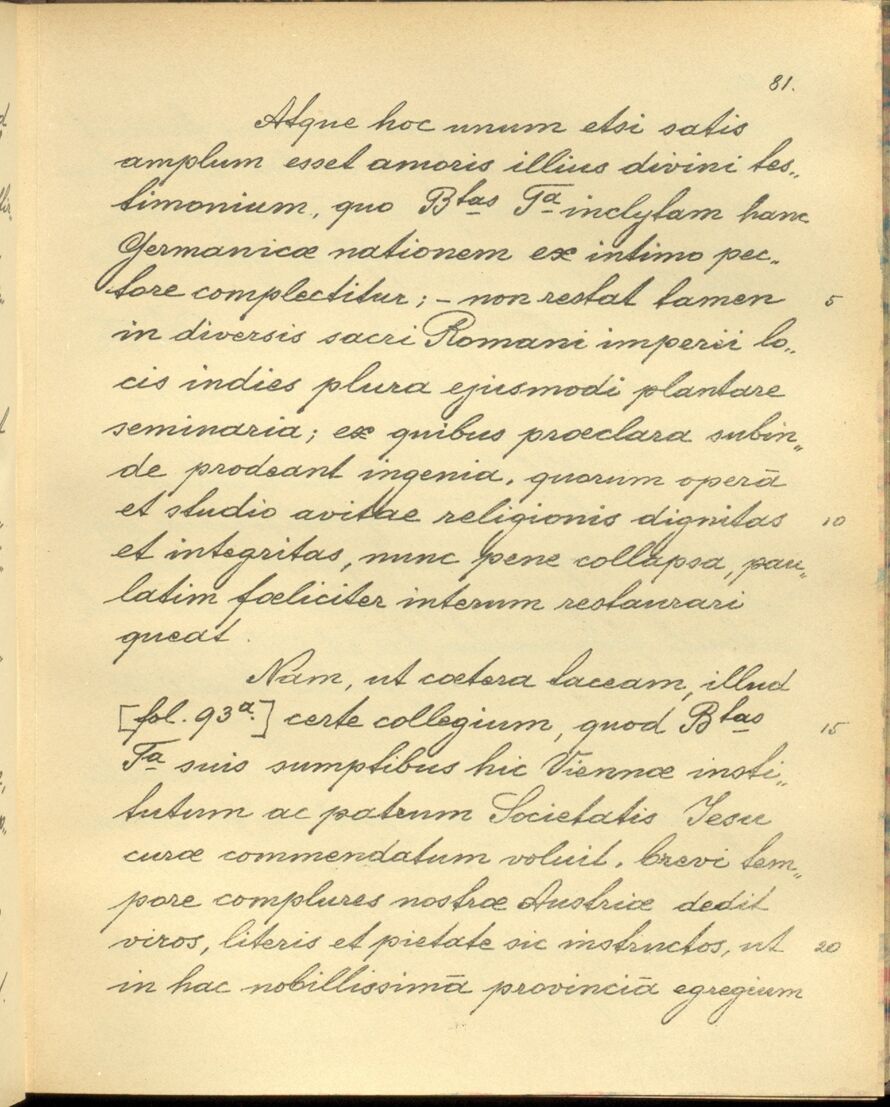 81.
Atque hoc unum etsi satis
amplum esset amoris illius divini tes„
timonium, quo Btas Ta inclytam hanc
Germanicæ nationem ex intimo pec„
tore complectitur; – non restat tamen 5
in diversis sacri Romani imperii lo„
cis indies plura ejusmodi plantare
seminaria; ex quibus præclara subin„
de prodeant ingenia, quorum operā
et studio avitae religionis dignitas 10
et integritas, nunc pene collapsa, pau„
latim fœliciter interum restaurari
queat.
Nam, ut cœtera taceam, illud
[fol. 93a.] certe collegium, quod Btas 15
Ta suis sumptibus hic Viennæ insti„
tutum ac patrum Societatis Jesu
curæ commendatum voluit, brevi tem„
pore complures nostræ Austriæ dedit
viros, literis et pietate sic instructos, ut 20
in hac nobillissimā provinciā egregium